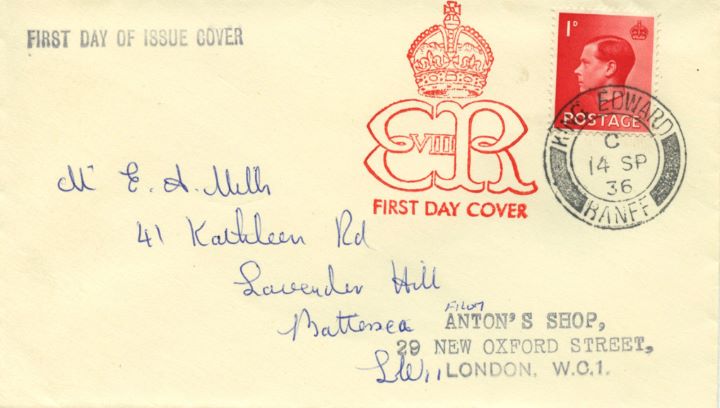 FIRST DAY OF ISSUE COVER
VIII
ER
FIRST DAY COVER
1D
POSTAGE
KING EDWARD
C
14 SP
36
BANFF
Mr E. A. Mills
41 Kathleen Rd
Lavender Hill
Battersea
S.W.11
FROM
ANTON'S SHOP,
29 NEW OXFORD STREET,
LONDON, W.C.1.